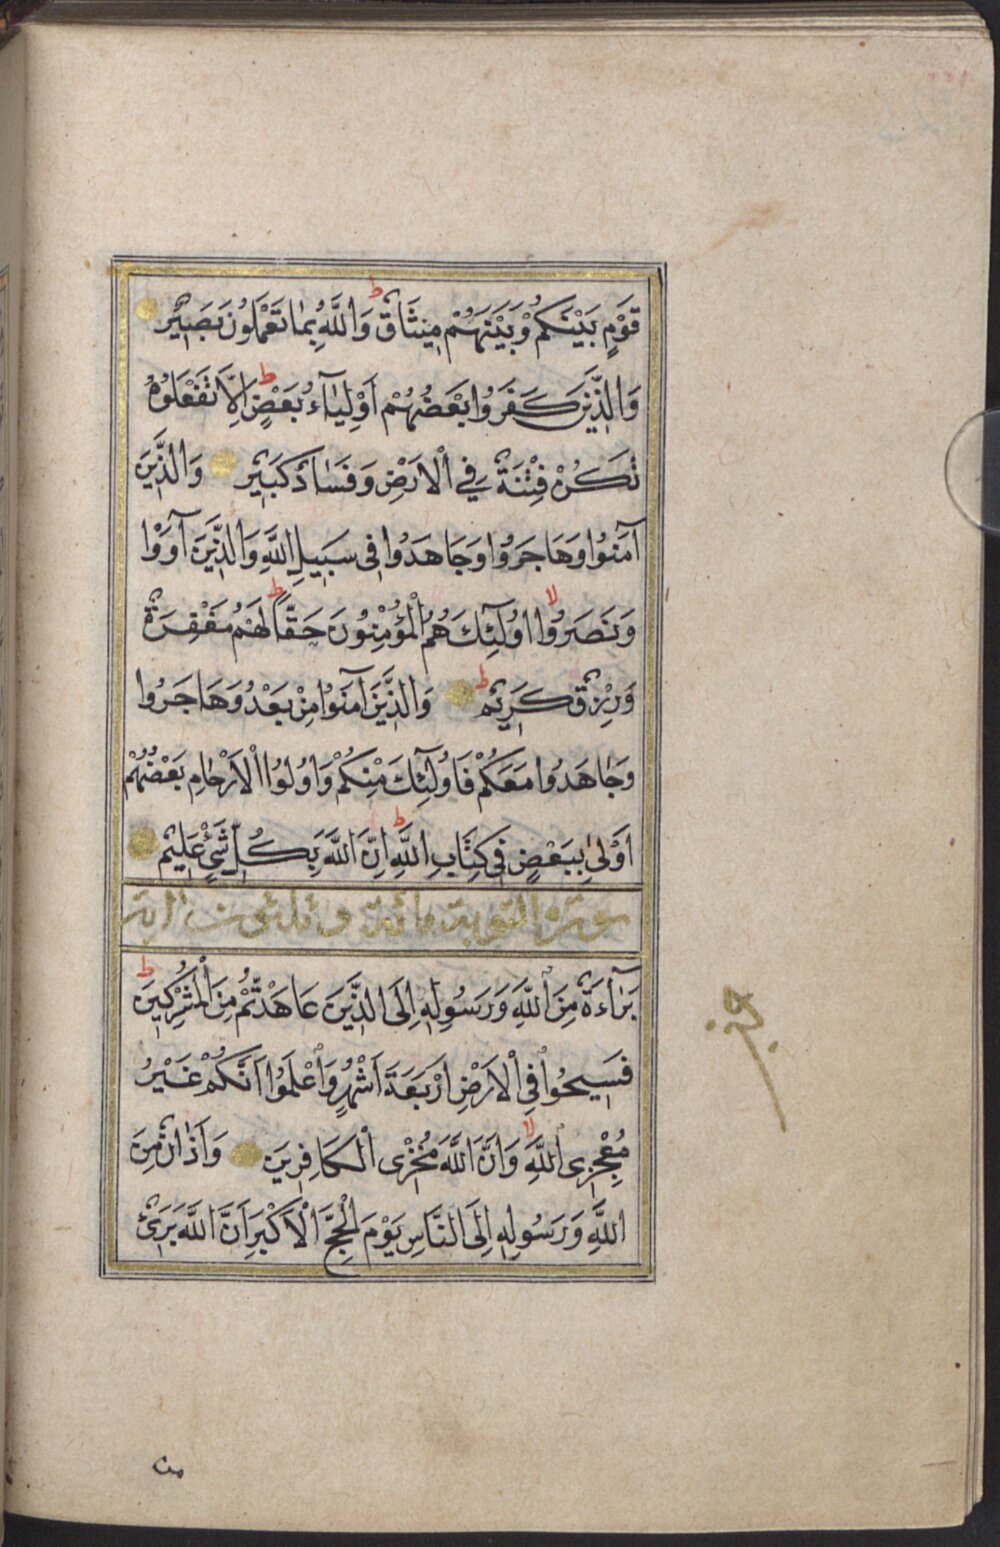 قَوْمٍ بَيْنَكُمْ وَبَيْنَهُمْ مِيثَاقٌ ط وَاللَّهُ بِمَا تَعْمَلُونَ بَصِيرٌ
وَالَّذِينَ كَفَرُوا بَعْضُهُمْ أَوْلِيَآءُ بَعْضٍ ط اِلَّا تَفْعَلُوهُ
تَكُنْ فِتْنَةٌ فِي الْاَرْضِ وَفَسَادٌ كَبِيرٌ وَالَّذِينَ
آمَنُوا وَهَاجَرُوا وَجَاهَدُوا فِي سَبِيلِ اللَّهِ وَالَّذِينَ آوَوْا
وَنَصَرُوا لا اُولَٓئِكَ هُمُ الْمُؤْمِنُونَ حَقًّا ط لَهُمْ مَغْفِرَةٌ
وَرِزْقٌ كَرِيمٌ ط وَالَّذِينَ آمَنُوا مِنْ بَعْدُ وَهَاجَرُوا
وَجَاهَدُوا مَعَكُمْ فَاُولَٓئِكَ مِنْكُمْ وَاُولُوا الْاَرْحَامِ بَعْضُهُمْ
اَوْلىٰ بِبَعْضٍ فِي كِتَابِ اللَّهِ ط اِنَّ اللَّهَ بِكُلِّ شَيْءٍ عَلِيمٌ
سورة التوبة مائة وثلثون اية
بَرَآءَةٌ مِنَ اللَّهِ وَرَسُولِهِ اِلَى الَّذِينَ عَاهَدْتُمْ مِنَ الْمُشْرِكِينَ ط
فَسِيحُوا فِي الْاَرْضِ اَرْبَعَةَ اَشْهُرٍ وَاعْلَمُوا اَنَّكُمْ غَيْرُ
مُعْجِزِي اللَّهِ لا وَاَنَّ اللَّهَ مُخْزِي الْكَافِرِينَ وَاَذَانٌ مِنَ
اللَّهِ وَرَسُولِهِ اِلَى النَّاسِ يَوْمَ الْحَجِّ الْاَكْبَرِ اَنَّ اللَّهَ بَرِيٓءٌ
حزب
من